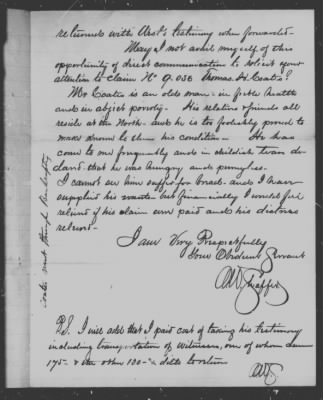 returned with West's testimony when forwarded.
May I not avail myself of this
opportunity of direct communication to solicit your
attention to Claim No 9.056 Thomas H. Coatis?
Mr Coatis is an old man - in feeble health
and in abject poverty. His relatives & friends all
reside at the North - and he is too probably proud to
make known to them his condition - He has
come to me frequently and in childish tears de-
clared that he was hungry and penniless.
I cannot see him suffer for bread - and I have
supplied his wants but financially I would feel
relieved if his claim were paid and his distress
relieved -
I am Very Respectfully
Your Obedient Servant
P.S. I will add that I paid cost of taking his testimony
including transportation of Witnesses, one of whom came
175 - & the other 130 -